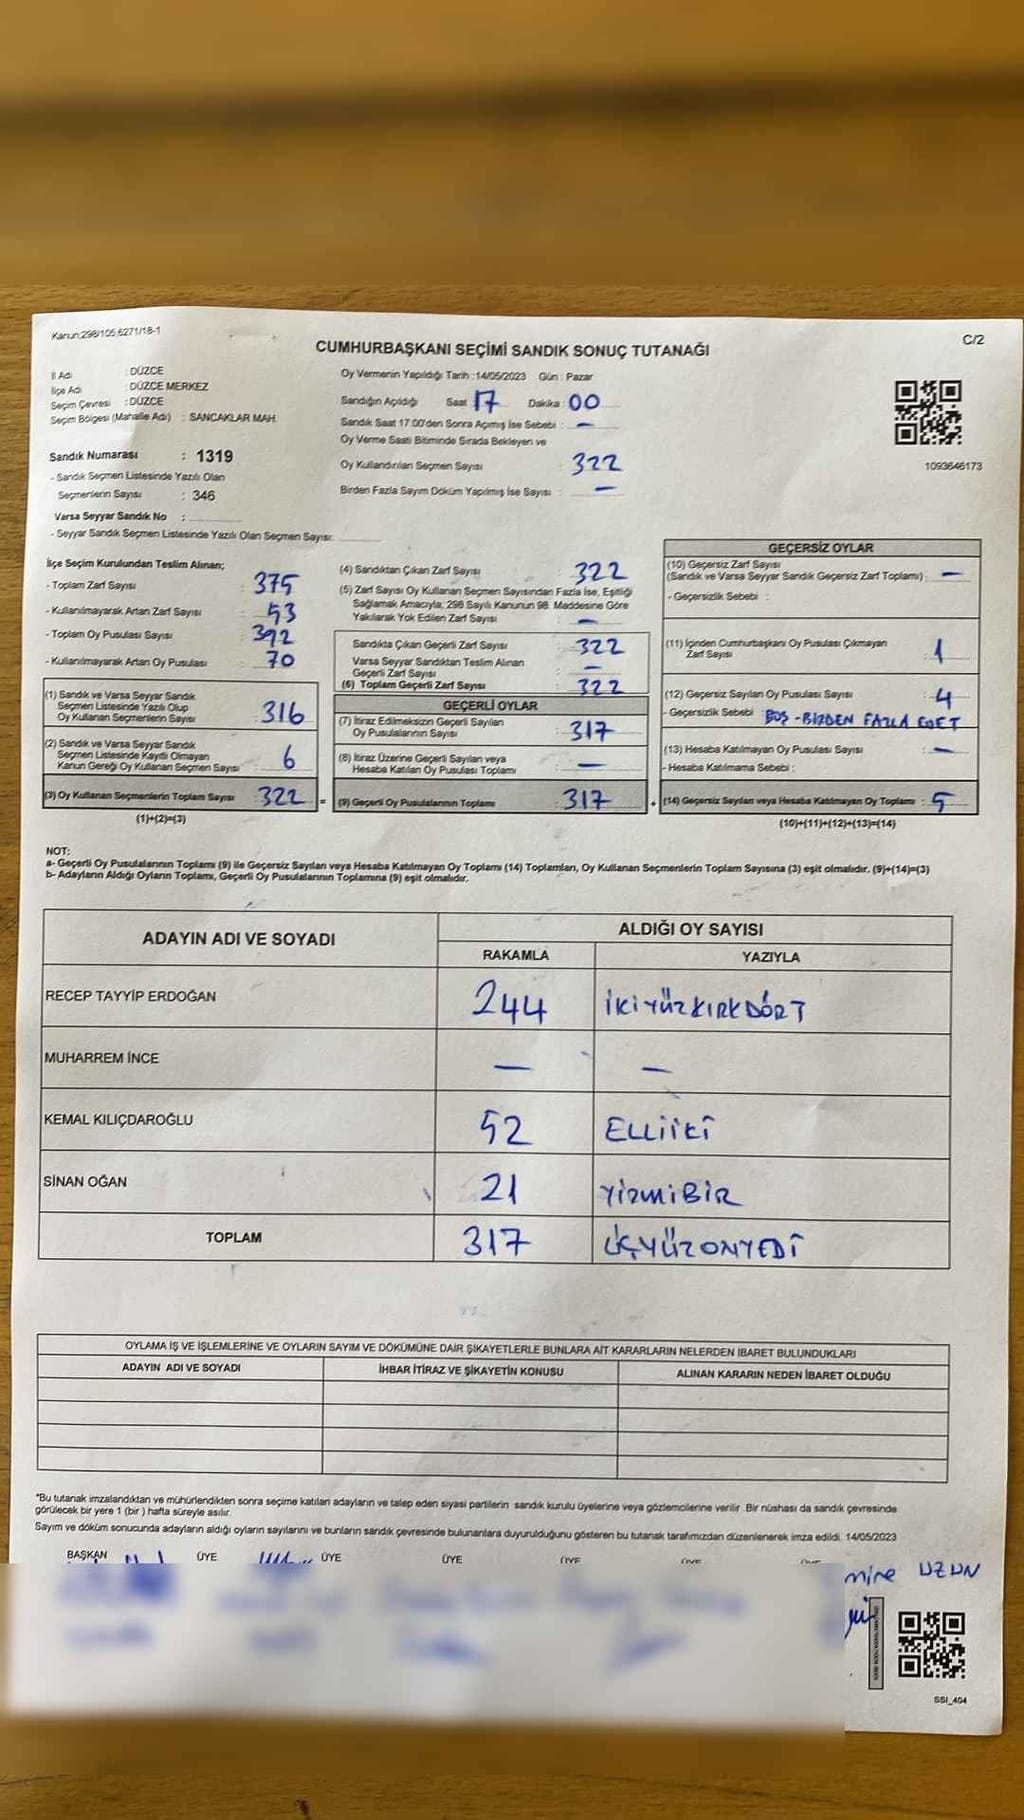 Kanun:298/105,6271/18-1
C/2
CUMHURBAŞKANI SEÇİMİ SANDIK SONUÇ TUTANAĞI
İl Adı : DÜZCE
İlçe Adı : DÜZCE MERKEZ
Seçim Çevresi : DÜZCE
Seçim Bölgesi (Mahalle Adı) : SANCAKLAR MAH.
Sandık Numarası : 1319
- Sandık Seçmen Listesinde Yazılı Olan
Seçmenlerin Sayısı : 346
Varsa Seyyar Sandık No :
- Seyyar Sandık Seçmen Listesinde Yazılı Olan Seçmen Sayısı:
Oy Vermenin Yapıldığı Tarih :14/05/2023 Gün : Pazar
Sandığın Açıldığı Saat 17 Dakika : 00
Sandık Saat 17:00'den Sonra Açılmış İse Sebebi : —
Oy Verme Saati Bitiminde Sırada Bekleyen ve
Oy Kullandırılan Seçmen Sayısı 322
Birden Fazla Sayım Döküm Yapılmış İse Sayısı : —
1093646173
İlçe Seçim Kurulundan Teslim Alınan;
- Toplam Zarf Sayısı : 375
- Kullanılmayarak Artan Zarf Sayısı : 53
- Toplam Oy Pusulası Sayısı : 392
- Kullanılmayarak Artan Oy Pusulası : 70
(1) Sandık ve Varsa Seyyar Sandık
Seçmen Listesinde Yazılı Olup
Oy Kullanan Seçmenlerin Sayısı : 316
(2) Sandık ve Varsa Seyyar Sandık
Seçmen Listesinde Kayıtlı Olmayan
Kanun Gereği Oy Kullanan Seçmen Sayısı : 6
(3) Oy Kullanan Seçmenlerin Toplam Sayısı : 322 =
(1)+(2)=(3)
(4) Sandıktan Çıkan Zarf Sayısı : 322
(5) Zarf Sayısı Oy Kullanan Seçmen Sayısından Fazla İse, Eşitliği
Sağlamak Amacıyla; 298 Sayılı Kanunun 98. Maddesine Göre
Yakılarak Yok Edilen Zarf Sayısı : —
Sandıkta Çıkan Geçerli Zarf Sayısı : 322
Varsa Seyyar Sandıktan Teslim Alınan
Geçerli Zarf Sayısı : —
(6) Toplam Geçerli Zarf Sayısı : 322
GEÇERLİ OYLAR
(7) İtiraz Edilmeksizin Geçerli Sayılan
Oy Pusulalarının Sayısı : 317
(8) İtiraz Üzerine Geçerli Sayılan veya
Hesaba Katılan Oy Pusulası Toplamı : —
(9) Geçerli Oy Pusulalarının Toplamı : 317 +
GEÇERSİZ OYLAR
(10) Geçersiz Zarf Sayısı
(Sandık ve Varsa Seyyar Sandık Geçersiz Zarf Toplamı) : —
- Geçersizlik Sebebi :
(11) İçinden Cumhurbaşkanı Oy Pusulası Çıkmayan
Zarf Sayısı : 1
(12) Geçersiz Sayılan Oy Pusulası Sayısı : 4
- Geçersizlik Sebebi : BOŞ - BİRDEN FAZLA EVET
(13) Hesaba Katılmayan Oy Pusulası Sayısı : —
- Hesaba Katılmama Sebebi :
(14) Geçersiz Sayılan veya Hesaba Katılmayan Oy Toplamı : 5
(10)+(11)+(12)+(13)=(14)
NOT:
a- Geçerli Oy Pusulalarının Toplamı (9) ile Geçersiz Sayılan veya Hesaba Katılmayan Oy Toplamı (14) Toplamları, Oy Kullanan Seçmenlerin Toplam Sayısına (3) eşit olmalıdır. (9)+(14)=(3)
b- Adayların Aldığı Oyların Toplamı, Geçerli Oy Pusulalarının Toplamına (9) eşit olmalıdır.
ADAYIN ADI VE SOYADI
ALDIĞI OY SAYISI
RAKAMLA YAZIYLA
RECEP TAYYİP ERDOĞAN 244 İKİYÜZKIRKDÖRT
MUHARREM İNCE — —
KEMAL KILIÇDAROĞLU 52 ELLİİKİ
SİNAN OĞAN 21 YİRMİBİR
TOPLAM 317 ÜÇYÜZONYEDİ
OYLAMA İŞ VE İŞLEMLERİNE VE OYLARIN SAYIM VE DÖKÜMÜNE DAİR ŞİKAYETLERLE BUNLARA AİT KARARLARIN NELERDEN İBARET BULUNDUKLARI
ADAYIN ADI VE SOYADI İHBAR İTİRAZ VE ŞİKAYETİN KONUSU ALINAN KARARIN NEDEN İBARET OLDUĞU
*Bu tutanak imzalandıktan ve mühürlendikten sonra seçime katılan adayların ve talep eden siyasi partilerin sandık kurulu üyelerine veya gözlemcilerine verilir. Bir nüshası da sandık çevresinde
görülecek bir yere 1 (bir ) hafta süreyle asılır.
Sayım ve döküm sonucunda adayların aldığı oyların sayılarını ve bunların sandık çevresinde bulunanlara duyurulduğunu gösteren bu tutanak tarafımızdan düzenlenerek imza edildi. 14/05/2023
BAŞKAN ÜYE ÜYE ÜYE
mine UZUN
SSI_404